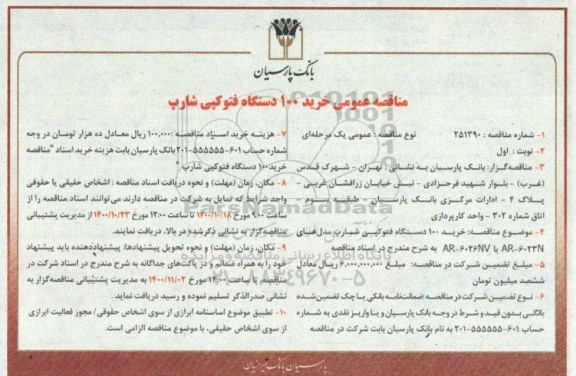 بانک پارسیان
مناقصه عمومی خرید ۱۰۰ دستگاه فتوکپی شارپ
۱- شماره مناقصه : ۲۵۱۳۹۰ نوع مناقصه : عمومی یک مرحله‌ای
۲- نوبت : اول
۳- مناقصه‌گزار: بانک پارسیان به نشانی : تهران - شهرک قدس
(غرب) - بلوار شهید فرحزادی - نبش خیابان زرافشان غربی -
پلاک ۴ - ادارات مرکزی بانک پارسیان - طبقه سوم -
اتاق شماره ۳۰۲ - واحد کارپردازی
۴- موضوع مناقصه: خرید ۱۰۰ دستگاه فتوکپی شارپ مدل‌های
AR-۶۰۲۳N یا AR-۶۰۲۶NV به شرح مندرج در اسناد مناقصه
۵- مبلغ تضمین شرکت در مناقصه: مبلغ ۶,۰۰۰,۰۰۰,۰۰۰ ریال معادل
ششصد میلیون تومان
۶- نوع تضمین شرکت در مناقصه: ضمانت‌نامه بانکی یا چک تضمین‌شده
بانکی بدون قید و شرط در وجه بانک پارسیان و یا واریز نقدی به شماره
حساب ۶۰۱-۵۵۵۵۵۵-۲۰۱ به نام بانک پارسیان بابت شرکت در مناقصه
۷- هزینه خرید اسناد مناقصه: ۱۰۰,۰۰۰ ریال معادل ده هزار تومان در وجه
شماره حساب ۶۰۱-۵۵۵۵۵۵-۲۰۱ بانک پارسیان بابت هزینه خرید اسناد "مناقصه
خرید ۱۰۰ دستگاه فتوکپی شارپ"
۸- مکان، زمان (مهلت) و نحوه دریافت اسناد مناقصه : اشخاص حقیقی یا حقوقی
واجد شرایط که تمایل به شرکت در مناقصه دارند می‌توانند اسناد مناقصه را از
ساعت ۹:۰۰ مورخ ۱۴۰۰/۱۰/۱۸ تا ساعت ۱۲:۰۰ مورخ ۱۴۰۰/۱۰/۲۳ از مدیریت پشتیبانی
مناقصه‌گزار به نشانی ذکرشده در بالا، دریافت نمایند.
۹- مکان، زمان (مهلت) و نحوه تحویل پیشنهادها: پیشنهاددهنده باید پیشنهاد
خود را به همراه ضمائم و در پاکت‌های جداگانه به شرح مندرج در اسناد شرکت در
مناقصه، تا ساعت ۱۴:۰۰ مورخ ۱۴۰۰/۱۱/۰۲ به مدیریت پشتیبانی مناقصه‌گزار به
نشانی صدرالذکر تسلیم نموده و رسید دریافت نماید.
۱۰- تطبیق موضوع اساسنامه ابرازی از سوی اشخاص حقوقی/ مجوز فعالیت ابرازی
از سوی اشخاص حقیقی، با موضوع مناقصه الزامی است.
پارسیان بانک ایرانیان
ParsNamadData
پایگاه اطلاع رسانی مناقصه و مزایده
۰۲۱-۸۸۳۴۹۶۷۰-۵